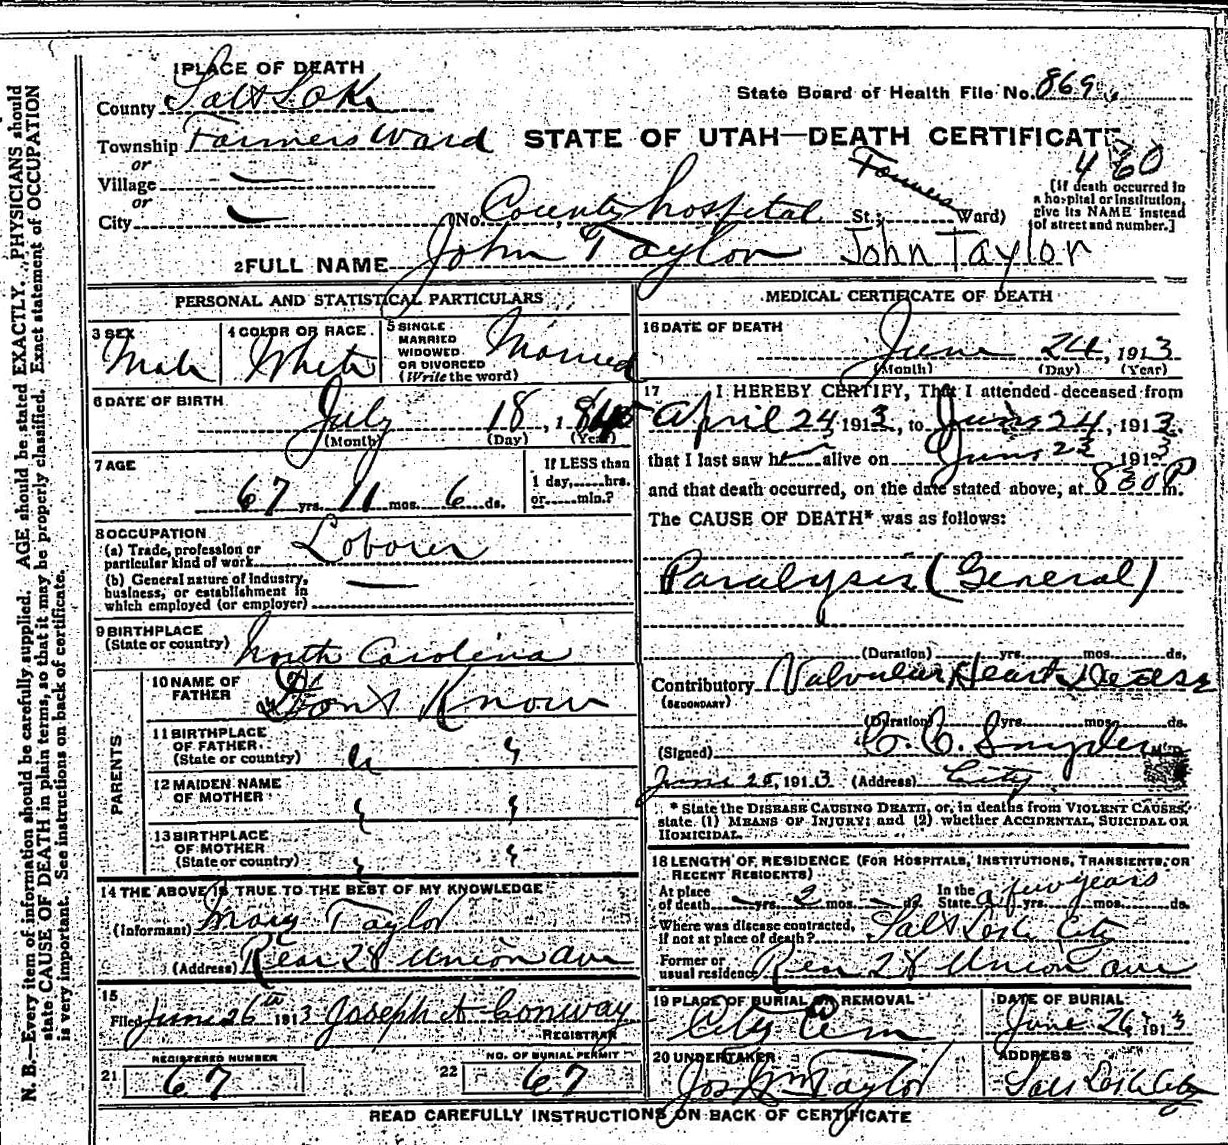 1 PLACE OF DEATH
County Salt Lake
State Board of Health File No. 869
Township Farmers Ward
STATE OF UTAH—DEATH CERTIFICATE
or
Village
460
or
City
No. County hospital St.; Farmers Ward)
[If death occurred in a hospital or institution, give its NAME instead of street and number.]
2 FULL NAME John Taylor John Taylor
PERSONAL AND STATISTICAL PARTICULARS
3 SEX
Male
4 COLOR OR RACE
White
5 SINGLE
MARRIED
WIDOWED
OR DIVORCED
(Write the word)
Married
6 DATE OF BIRTH
July 18, 184
(Month) (Day) (Year)
7 AGE
67 yrs. 11 mos. 6 ds.
If LESS than
1 day,......hrs.
or......min.?
8 OCCUPATION
(a) Trade, profession or
particular kind of work Laborer
(b) General nature of industry,
business, or establishment in
which employed (or employer)
9 BIRTHPLACE
(State or country) North Carolina
PARENTS
10 NAME OF
FATHER Dont Know
11 BIRTHPLACE
OF FATHER
(State or country) " "
12 MAIDEN NAME
OF MOTHER " "
13 BIRTHPLACE
OF MOTHER
(State or country) " "
14 THE ABOVE IS TRUE TO THE BEST OF MY KNOWLEDGE
(Informant) Mary Taylor
(Address) Rear 28 Union ave
15
Filed June 26th 1913 Joseph H Conway
REGISTRAR
21 REGISTERED NUMBER
67
22 NO. OF BURIAL PERMIT
67
MEDICAL CERTIFICATE OF DEATH
16 DATE OF DEATH
June 24, 1913
(Month) (Day) (Year)
17 I HEREBY CERTIFY, That I attended deceased from
April 24 1913, to June 24, 1913.
that I last saw h alive on June 23 1913
and that death occurred, on the date stated above, at 830 P m.
The CAUSE OF DEATH* was as follows:
Paralysis (General)
(Duration) yrs. mos. ds.
Contributory Valvular Heart Disease
(SECONDARY)
(Duration) yrs. mos. ds.
(Signed) C. C. Snyder M.D.
June 25, 1913 (Address) City
* State the DISEASE CAUSING DEATH, or, in deaths from VIOLENT CAUSES,
state (1) MEANS OF INJURY; and (2) whether ACCIDENTAL, SUICIDAL OR
HOMICIDAL.
18 LENGTH OF RESIDENCE (FOR HOSPITALS, INSTITUTIONS, TRANSIENTS, OR
RECENT RESIDENTS)
At place of death yrs. 2 mos. ds. In the State a few years yrs. mos. ds.
Where was disease contracted,
if not at place of death? Salt Lake City
Former or
usual residence Rear 28 Union ave
19 PLACE OF BURIAL OR REMOVAL
City Cem
DATE OF BURIAL
June 26 1913
20 UNDERTAKER
Jos Wm Taylor
ADDRESS
Salt Lake City
READ CAREFULLY INSTRUCTIONS ON BACK OF CERTIFICATE
N. B.—Every item of information should be carefully supplied. AGE should be stated EXACTLY. PHYSICIANS should
state CAUSE OF DEATH in plain terms, so that it may be properly classified. Exact statement of OCCUPATION
is very important. See instructions on back of certificate.